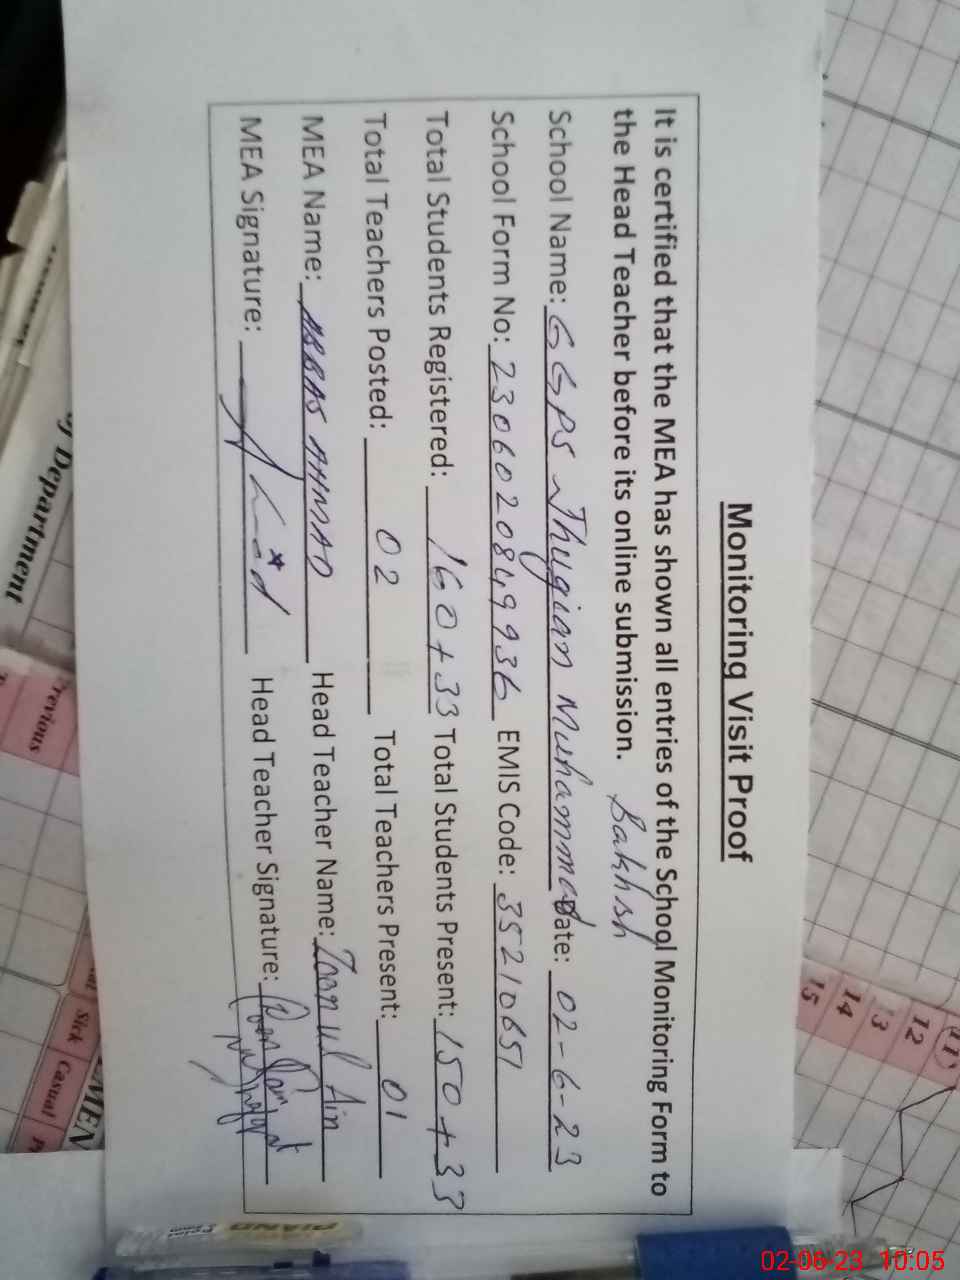 Monitoring Visit Proof
It is certified that the MEA has shown all entries of the School Monitoring Form to
the Head Teacher before its online submission.
Bakhsh
School Name: GGPS Jhugian Muhammad Date: 02-6-23
School Form No: 2306020849936 EMIS Code: 35210651
Total Students Registered: 160+33 Total Students Present: 150+33
Total Teachers Posted: 02 Total Teachers Present: 01
MEA Name: ABBAS AHMAD Head Teacher Name: Zoon ul Ain
MEA Signature: Head Teacher Signature:
Department
Previous
Sick
Casual
11
12
13
14
15
PIANO
02-06-23 10:05